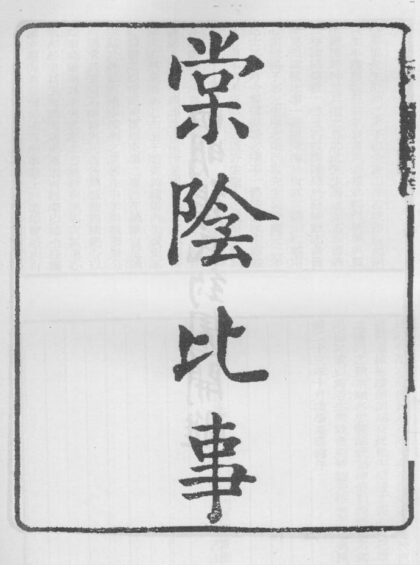 棠陰比事